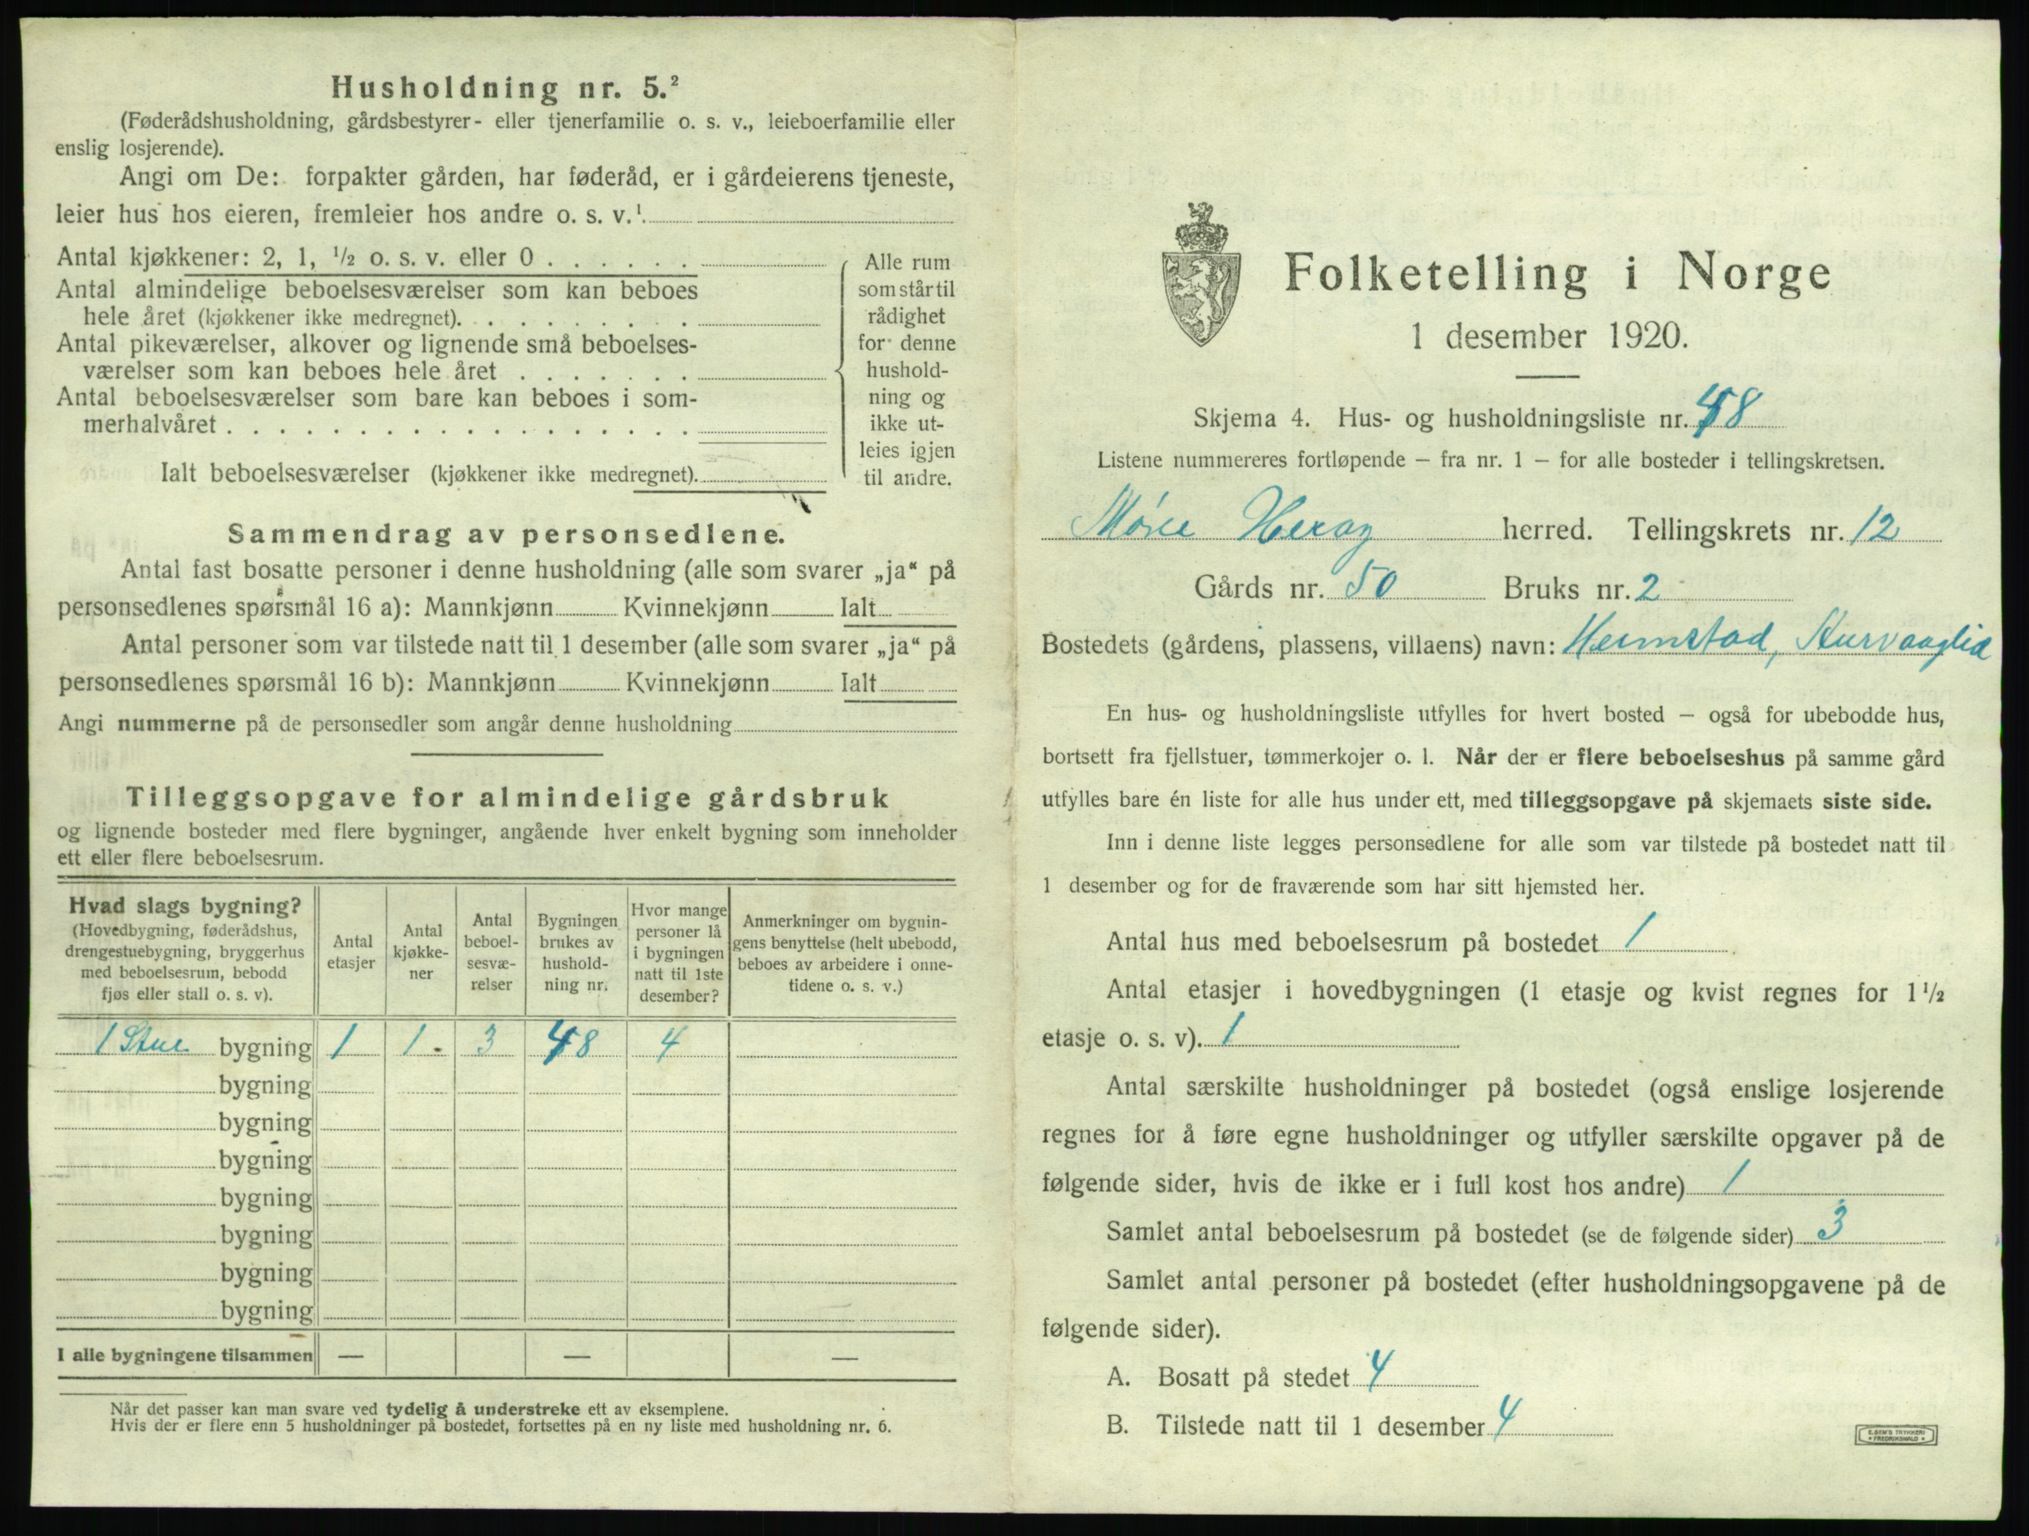 Husholdning nr. 5.²
(Føderådshusholdning, gårdsbestyrer- eller tjenerfamilie o. s. v., leieboerfamilie eller
enslig losjerende).
Angi om De: forpakter gården, har føderåd, er i gårdeierens tjeneste,
leier hus hos eieren, fremleier hos andre o. s. v.¹
Antal kjøkkener: 2, 1, ½ o. s. v. eller 0
Antal almindelige beboelsesværelser som kan beboes
hele året (kjøkkener ikke medregnet).
Antal pikeværelser, alkover og lignende små beboelses-
værelser som kan beboes hele året
Antal beboelsesværelser som bare kan beboes i som-
merhalvåret
Ialt beboelsesværelser (kjøkkener ikke medregnet).
Alle rum
som står til
rådighet
for denne
hushold-
ning og
ikke ut-
leies igjen
til andre.
Sammendrag av personsedlene.
Antal fast bosatte personer i denne husholdning (alle som svarer „ja“ på
personsedlenes spørsmål 16 a): Mannkjønn Kvinnekjønn Ialt
Antal personer som var tilstede natt til 1 desember (alle som svarer „ja“ på
personsedlenes spørsmål 16 b): Mannkjønn Kvinnekjønn Ialt
Angi nummerne på de personsedler som angår denne husholdning
Tilleggsopgave for almindelige gårdsbruk
og lignende bosteder med flere bygninger, angående hver enkelt bygning som inneholder
ett eller flere beboelsesrum.
Hvad slags bygning?
(Hovedbygning, føderådshus,
drengestuebygning, bryggerhus
med beboelsesrum, bebodd
fjøs eller stall o. s. v).
Antal
etasjer
Antal
kjøkke-
ner
Antal
beboel-
sesvæ-
relser
Bygningen
brukes av
hushold-
ning nr.
Hvor mange
personer lå
i bygningen
natt til 1ste
desember?
Anmerkninger om bygnin-
gens benyttelse (helt ubebodd,
beboes av arbeidere i onne-
tidene o. s. v.)
1 Stue bygning 1 1. 3 48 4
bygning
bygning
bygning
bygning
bygning
bygning
bygning
I alle bygningene tilsammen — — —
Når det passer kan man svare ved tydelig å understreke ett av eksemplene.
Hvis der er flere enn 5 husholdninger på bostedet, fortsettes på en ny liste med husholdning nr. 6.
Folketelling i Norge
1 desember 1920.
Skjema 4. Hus- og husholdningsliste nr. 48
Listene nummereres fortløpende — fra nr. 1 — for alle bosteder i tellingskretsen.
Møre Herøy herred. Tellingskrets nr. 12
Gårds nr. 50 Bruks nr. 2
Bostedets (gårdens, plassens, villaens) navn: Heimstad, Kurvaaglid
En hus- og husholdningsliste utfylles for hvert bosted — også for ubebodde hus,
bortsett fra fjellstuer, tømmerkojer o. l. Når der er flere beboelseshus på samme gård
utfylles bare én liste for alle hus under ett, med tilleggsopgave på skjemaets siste side.
Inn i denne liste legges personsedlene for alle som var tilstede på bostedet natt til
1 desember og for de fraværende som har sitt hjemsted her.
Antal hus med beboelsesrum på bostedet 1
Antal etasjer i hovedbygningen (1 etasje og kvist regnes for 1½
etasje o. s. v). 1
Antal særskilte husholdninger på bostedet (også enslige losjerende
regnes for å føre egne husholdninger og utfyller særskilte opgaver på de
følgende sider, hvis de ikke er i full kost hos andre) 1
Samlet antal beboelsesrum på bostedet (se de følgende sider) 3
Samlet antal personer på bostedet (efter husholdningsopgavene på de
følgende sider).
A. Bosatt på stedet 4
B. Tilstede natt til 1 desember 4